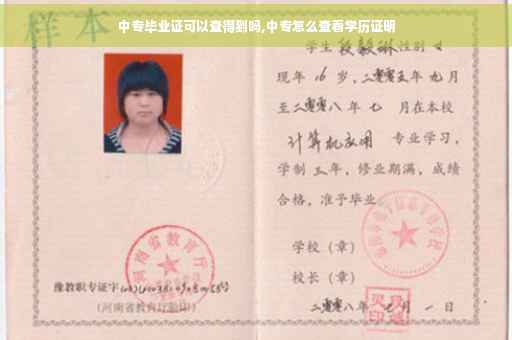 中专毕业证可以查得到吗,中专怎么查看学历证明
样本
学生 段毅琳 性别 女
现年 16 岁,二零零五年 九 月
至二零零八年 七 月在本校
计算机应用 专业学习,
学制 三 年,修业期满,成绩
合格,准予毕业。
学校(章)
校长(章)
二零零八年 月 一 日
河南省教育厅
豫教职专证字
(河南省教育厅验印)